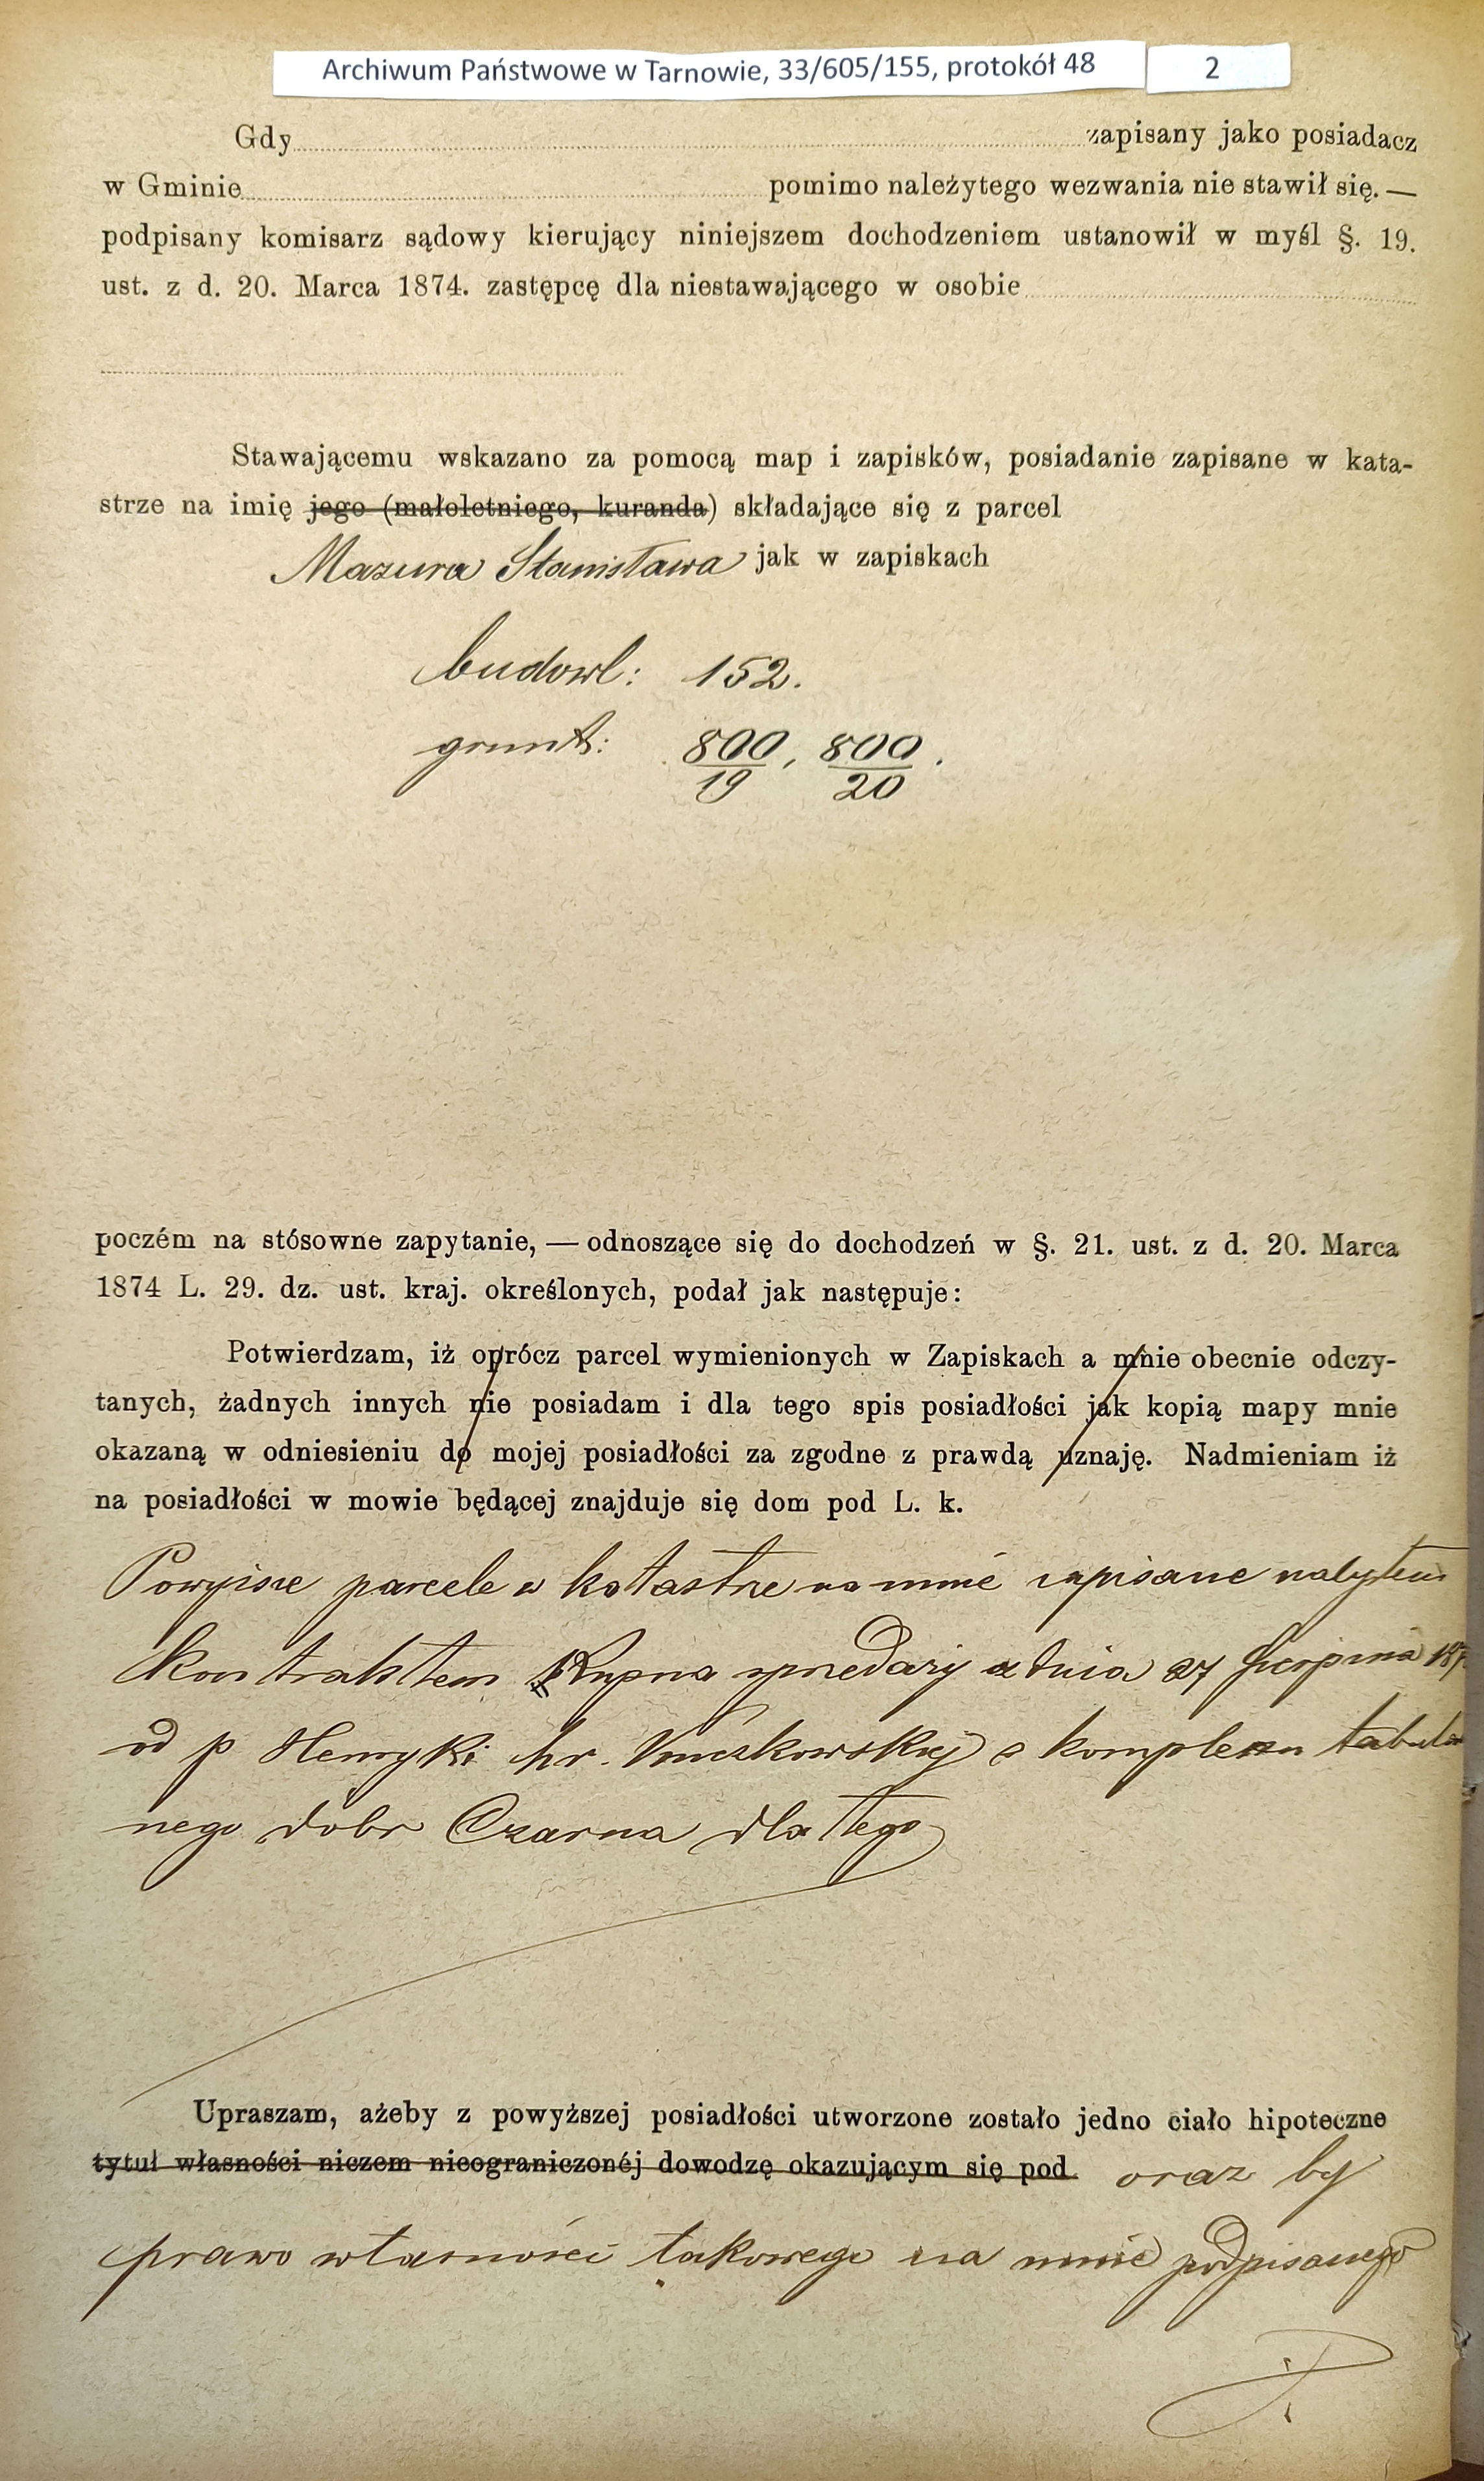 Archiwum Państwowe w Tarnowie, 33/605/155, protokół 48 2
Gdy zapisany jako posiadacz
w Gminie pomimo należytego wezwania nie stawił się. —
podpisany komisarz sądowy kierujący niniejszem dochodzeniem ustanowił w myśl §. 19.
ust. z d. 20. Marca 1874. zastępcę dla niestawającego w osobie
Stawającemu wskazano za pomocą map i zapisków, posiadanie zapisane w kata-
strze na imię jego (małoletniego, kuranda) składające się z parcel
Mazura Stanisława jak w zapiskach
budowl: 152.
grunt: 800/19, 800/20.
poczém na stósowne zapytanie, — odnoszące się do dochodzeń w §. 21. ust. z d. 20. Marca
1874 L. 29. dz. ust. kraj. określonych, podał jak następuje:
Potwierdzam, iż oprócz parcel wymienionych w Zapiskach a mnie obecnie odczy-
tanych, żadnych innych nie posiadam i dla tego spis posiadłości jak kopią mapy mnie
okazaną w odniesieniu do mojej posiadłości za zgodne z prawdą uznaję. Nadmieniam iż
na posiadłości w mowie będącej znajduje się dom pod L. k.
Powyższe parcele w katastrze na mnie zapisane nabyłem
kontraktem kupna sprzedaży z dnia 27 Sierpnia
od p Henryki hr. z komplexu tabular
nego dóbr Czarna dla tego
Upraszam, ażeby z powyższej posiadłości utworzone zostało jedno ciało hipoteczne
tytuł własności niczem nieograniczonéj dowodzę okazującym się pod oraz by
prawo własności takowego na mnie podpisanego